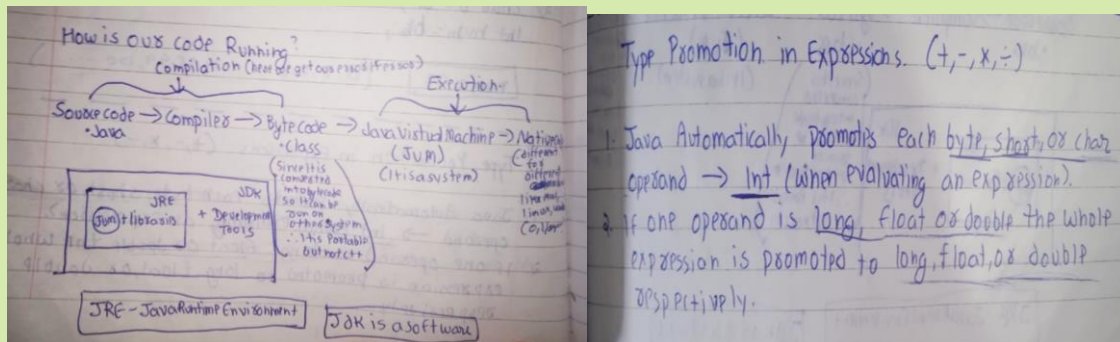 How is our code Running?
Compilation (here we get our errors if errors)
Execution
Source code → Compiler → Byte code → Java Virtual Machine → Native
.Java
.class
(JVM)
(It is a system)
(Since It is
converted
into bytecode
so it can be
run on
other system
∴ It is Portable
but not c++)
(different
for
different
JDK
JRE
JVM + libraries
+ Development
Tools
JRE - Java Runtime Environment
JDK is a software
Type Promotion in Expressions. (+,-,×,÷)
1. Java Automatically, promotes each byte, short, or char
operand → Int (when evaluating an expression).
2. If one operand is long, float or double the whole
expression is promoted to long, float, or double
respectively.